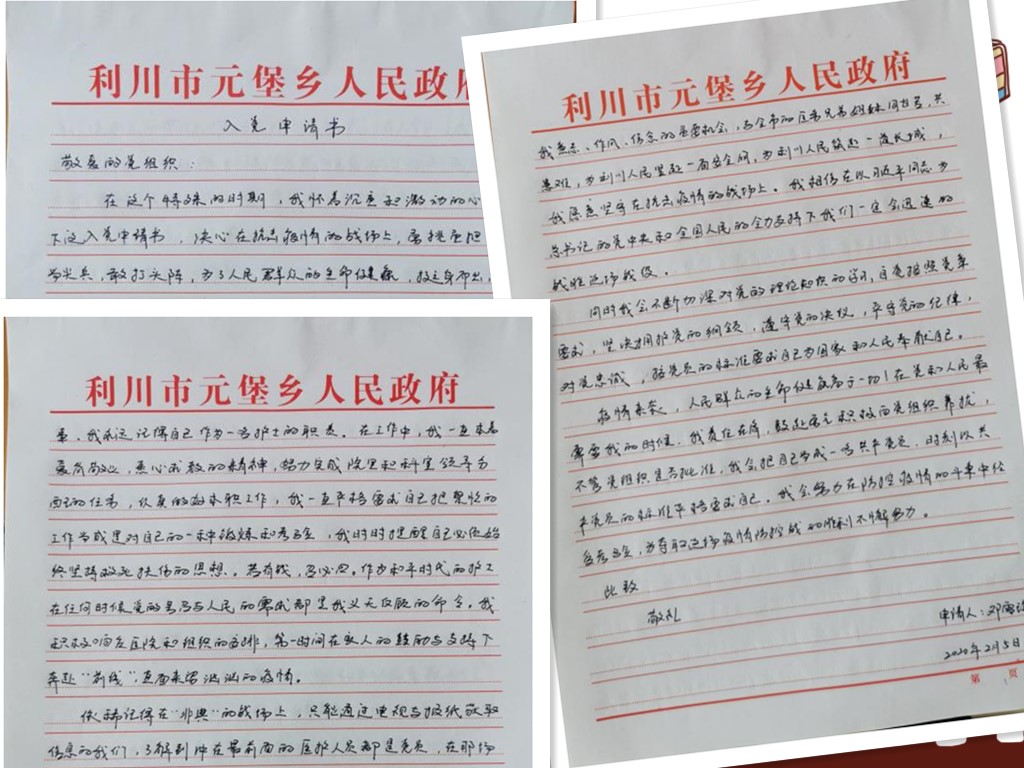 利川市元堡乡人民政府
入党申请书
敬爱的党组织：
在这个特殊的时期，我怀着沉重和激动的心
下这入党申请书，决心在抗击疫情的战场上，勇挑重担
当尖兵，敢打头阵，为了人民群众的生命健康，挺身而出，
利川市元堡乡人民政府
事，我永远记得自己作为一名护士的职责。在工作中，我一直本着
爱岗敬业，悉心求教的精神，努力完成院里和科室领导分
配的任务，认真的做本职工作，我一直严格要求自己把繁忙的
工作当成是对自己的一种锻炼和考验，我时时提醒自己必须始
终坚持救死扶伤的思想。若有战，召必回。作为和平时代的护士
在任何时候党的号召与人民的需求都是我义无反顾的命令。我
积极响应医院和组织的安排，第一时间在家人的鼓励与支持下
奔赴“前线”，直面来势汹汹的疫情。
依稀记得在“非典”的战场上，只能通过电视与报纸获取
信息的我们，了解到冲在最前面的医护人员都是党员，在那场
利川市元堡乡人民政府
我意志、作风、信念的重要机会，与全市的医务兄弟姐妹同甘苦，共
患难，为利川人民竖起一面安全网，为利川人民筑起一道长城，
我愿意坚守在抗击疫情的战场上。我相信在以习近平同志为
总书记的党中央和全国人民的全力支持下我们一定会迅速的
战胜这场战役。
同时我会不断切深对党的理论知识的学习，自觉按照党章
要求，坚决拥护党的纲领，遵守党的决议，严守党的纪律，
对党忠诚，按党员的标准要求自己为国家和人民奉献自己。
疫情来袭，人民群众的生命健康高于一切！在党和人民最
需要我的时候，我责任在肩，数起
积极向党组织靠拢，
不管党组织是否批准，我会把自己当成一名共产党员，时刻以共
产党员的标准严格要求自己。我会努力在防控疫情的斗争中经
受考验，为夺取这场疫情防控战的胜利不懈努力。
此致
敬礼
申请人：邓
2020年2月5日
第 页